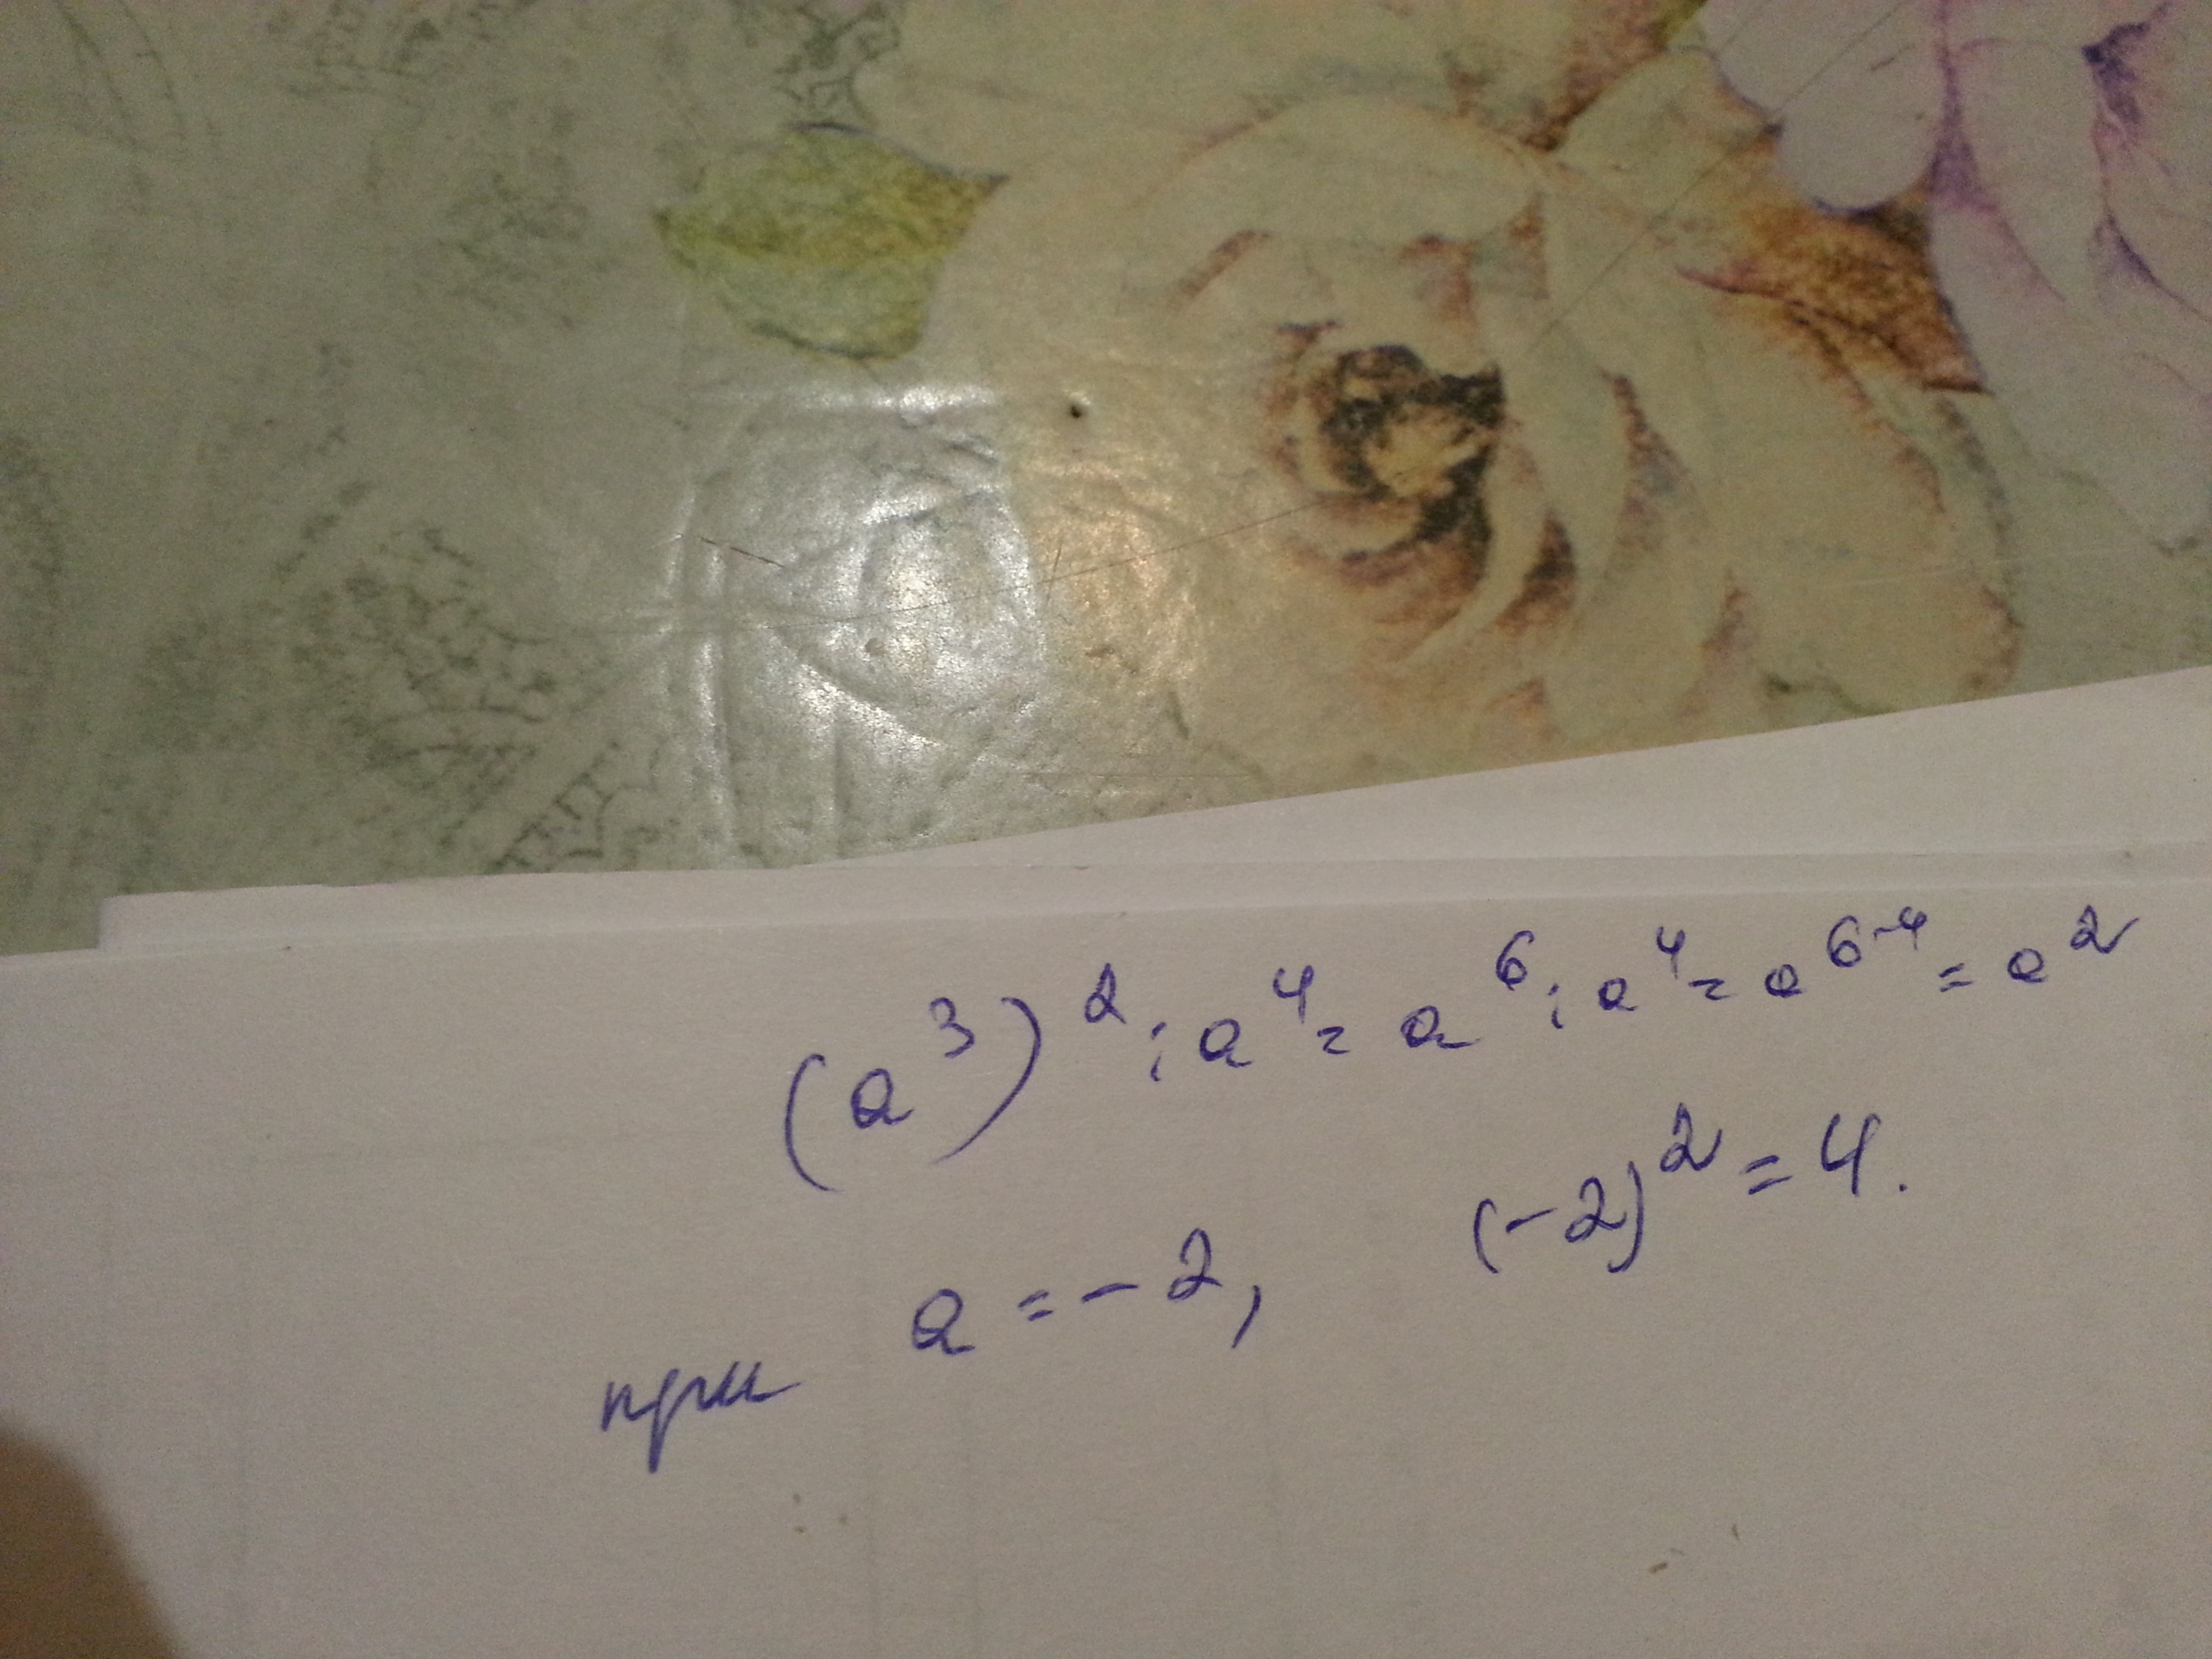 (a³)² : a⁴ = a⁶ : a⁴ = a⁶⁻⁴ = a²
при a = -2, (-2)² = 4.